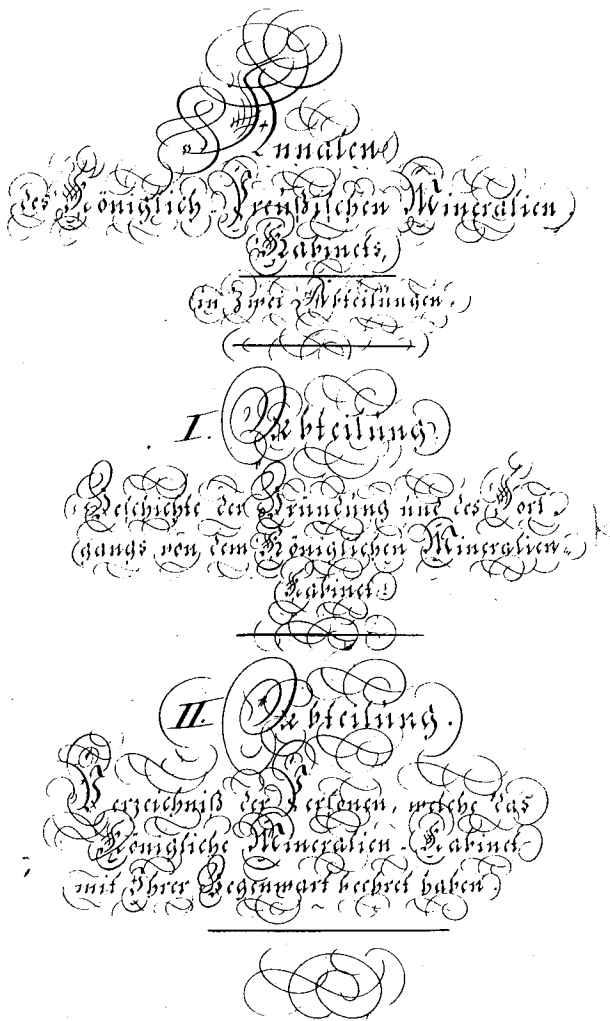 Annalen
des Königlich Preußischen Mineralien
Kabinets,
in zwei Abteilungen.
I. Abteilung.
Geschichte der Gründung und des Fort-
gangs von dem Königlichen Mineralien-
Kabinet.
II. Abteilung.
Verzeichniß der Personen, welche das
Königliche Mineralien-Kabinet
mit Ihrer Gegenwart beehret haben.